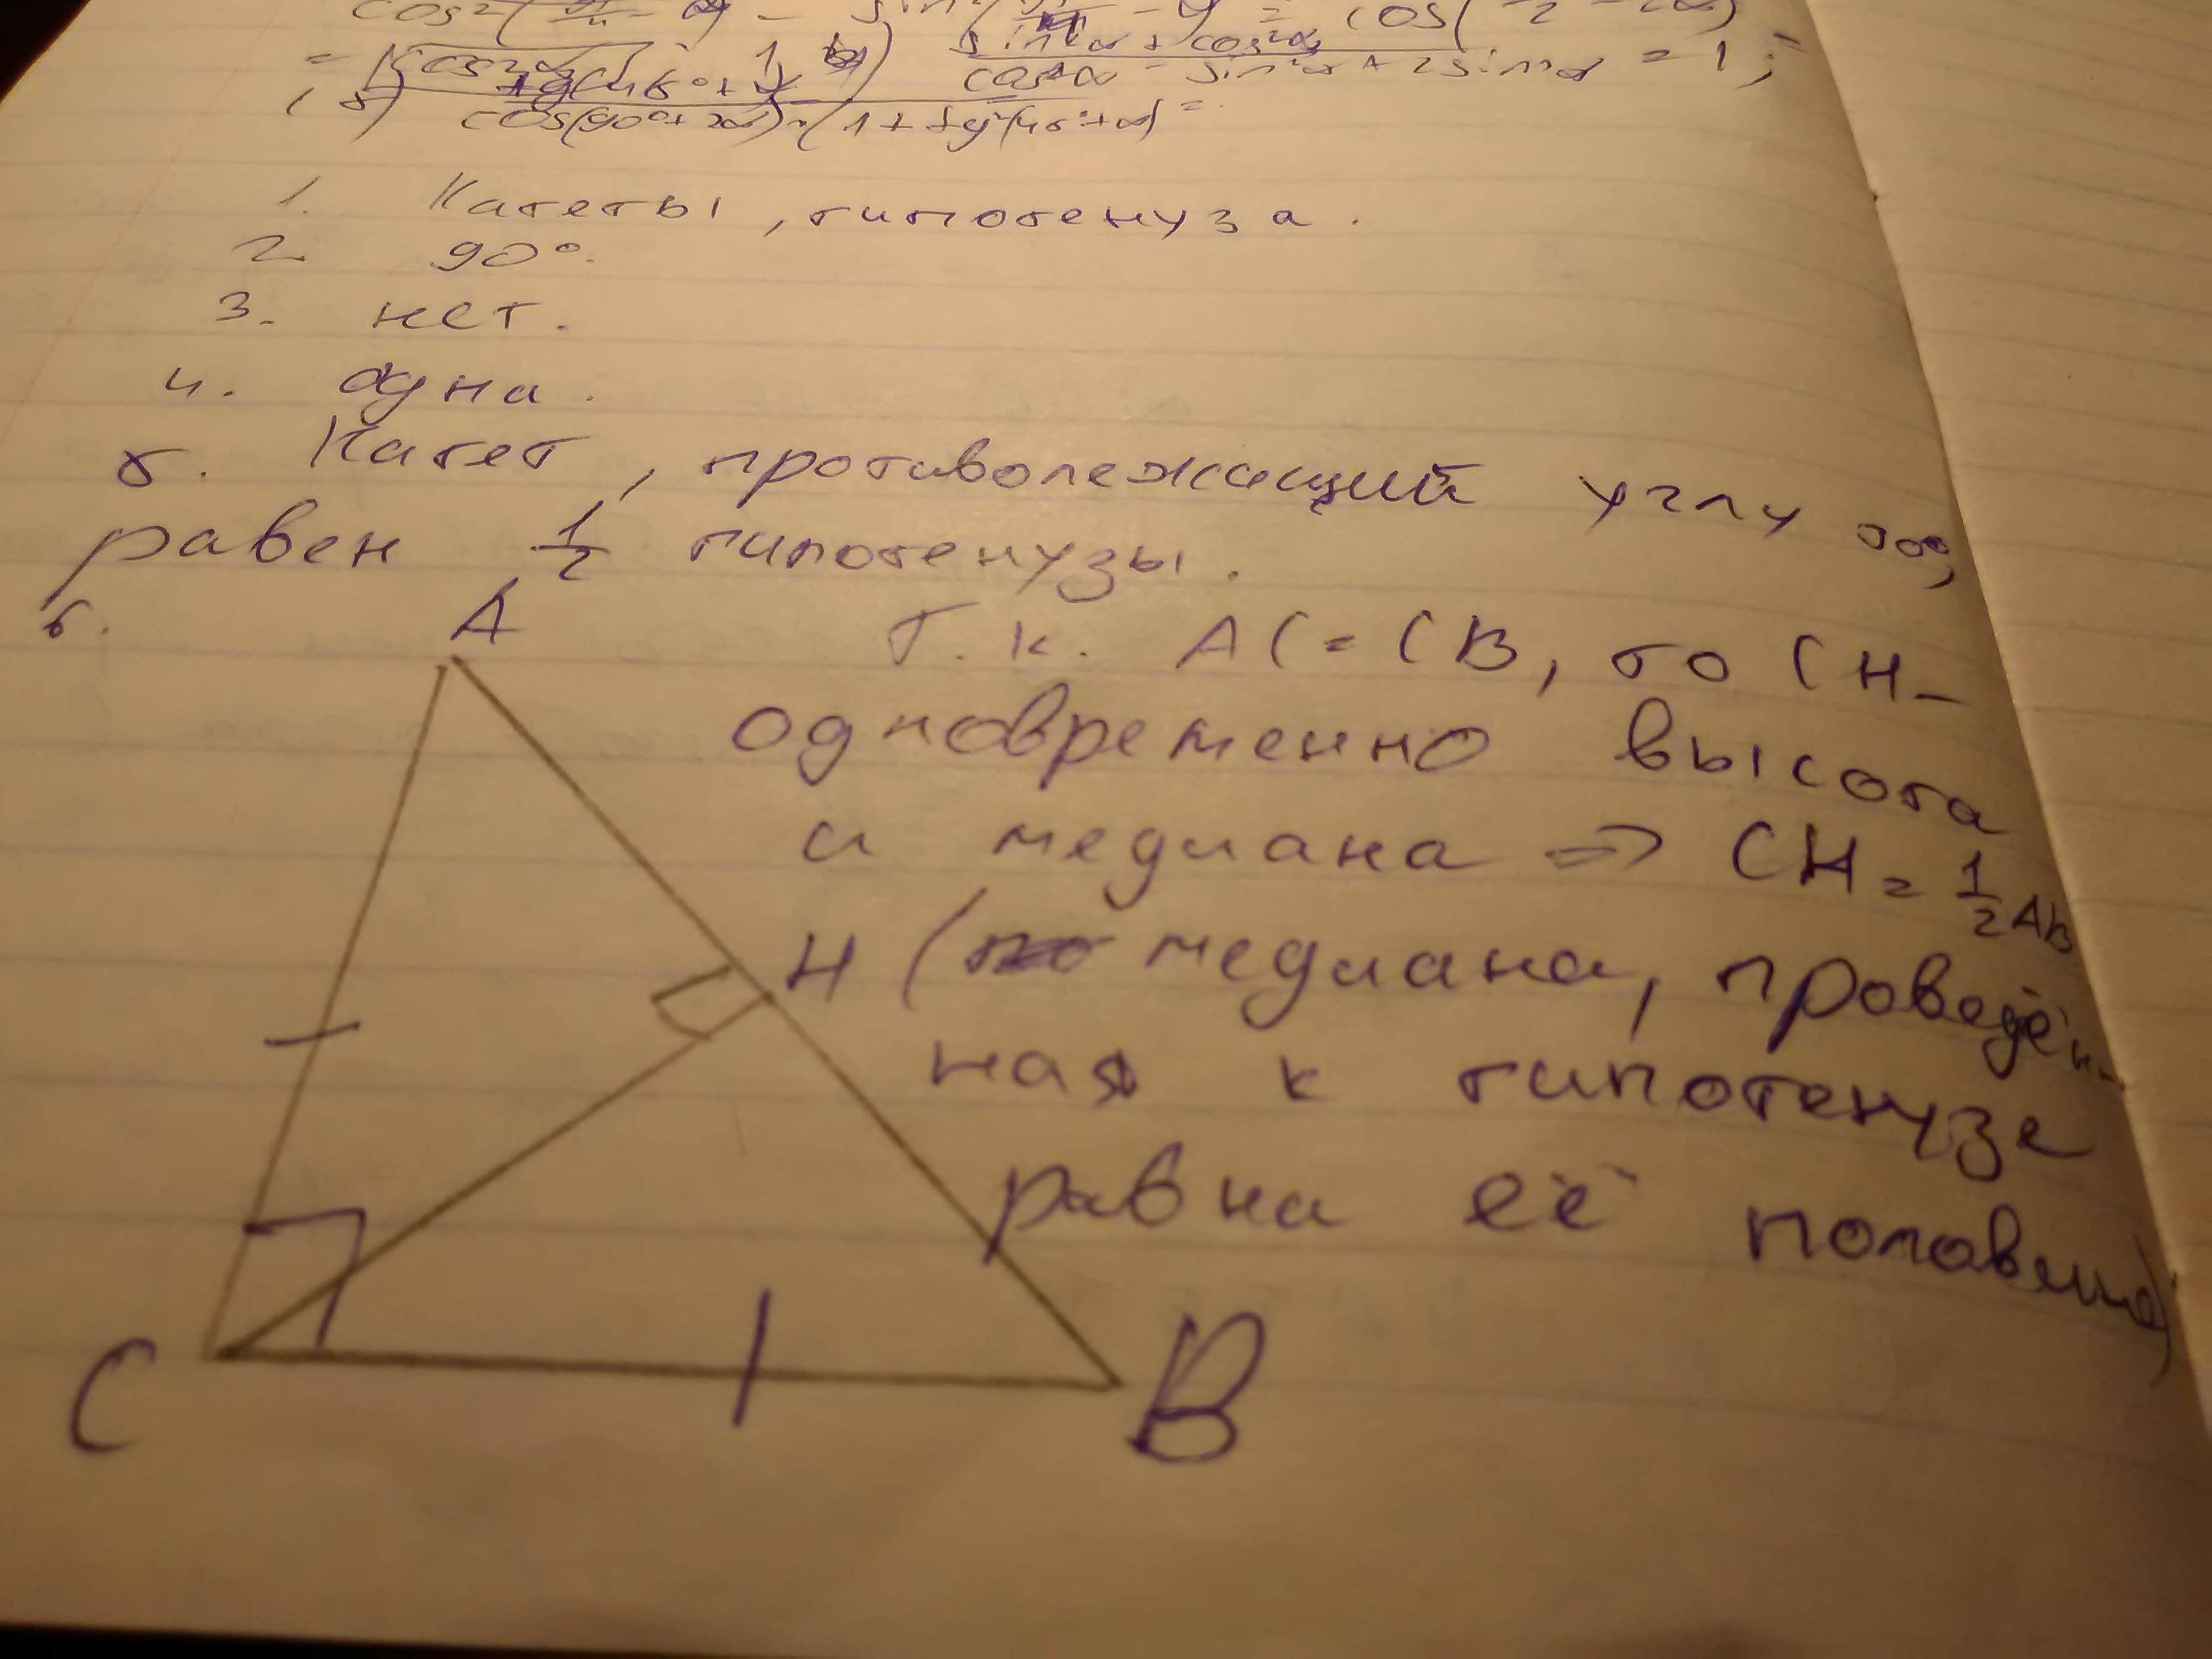 = 1;
cos(90°+2α)·(1+tg²(45°+α) =
1. Катеты, гипотенуза.
2. 90°.
3. нет.
4. одна.
5. Катет, противолежащий углу 30°,
равен 1/2 гипотенузы.
6.
A
Т.к. AC = CB, то CH –
одновременно высота
и медиана ⇒ CH = 1/2 AB
H
(медиана, проведён-
ная к гипотенузе
равна её половине)
C
B